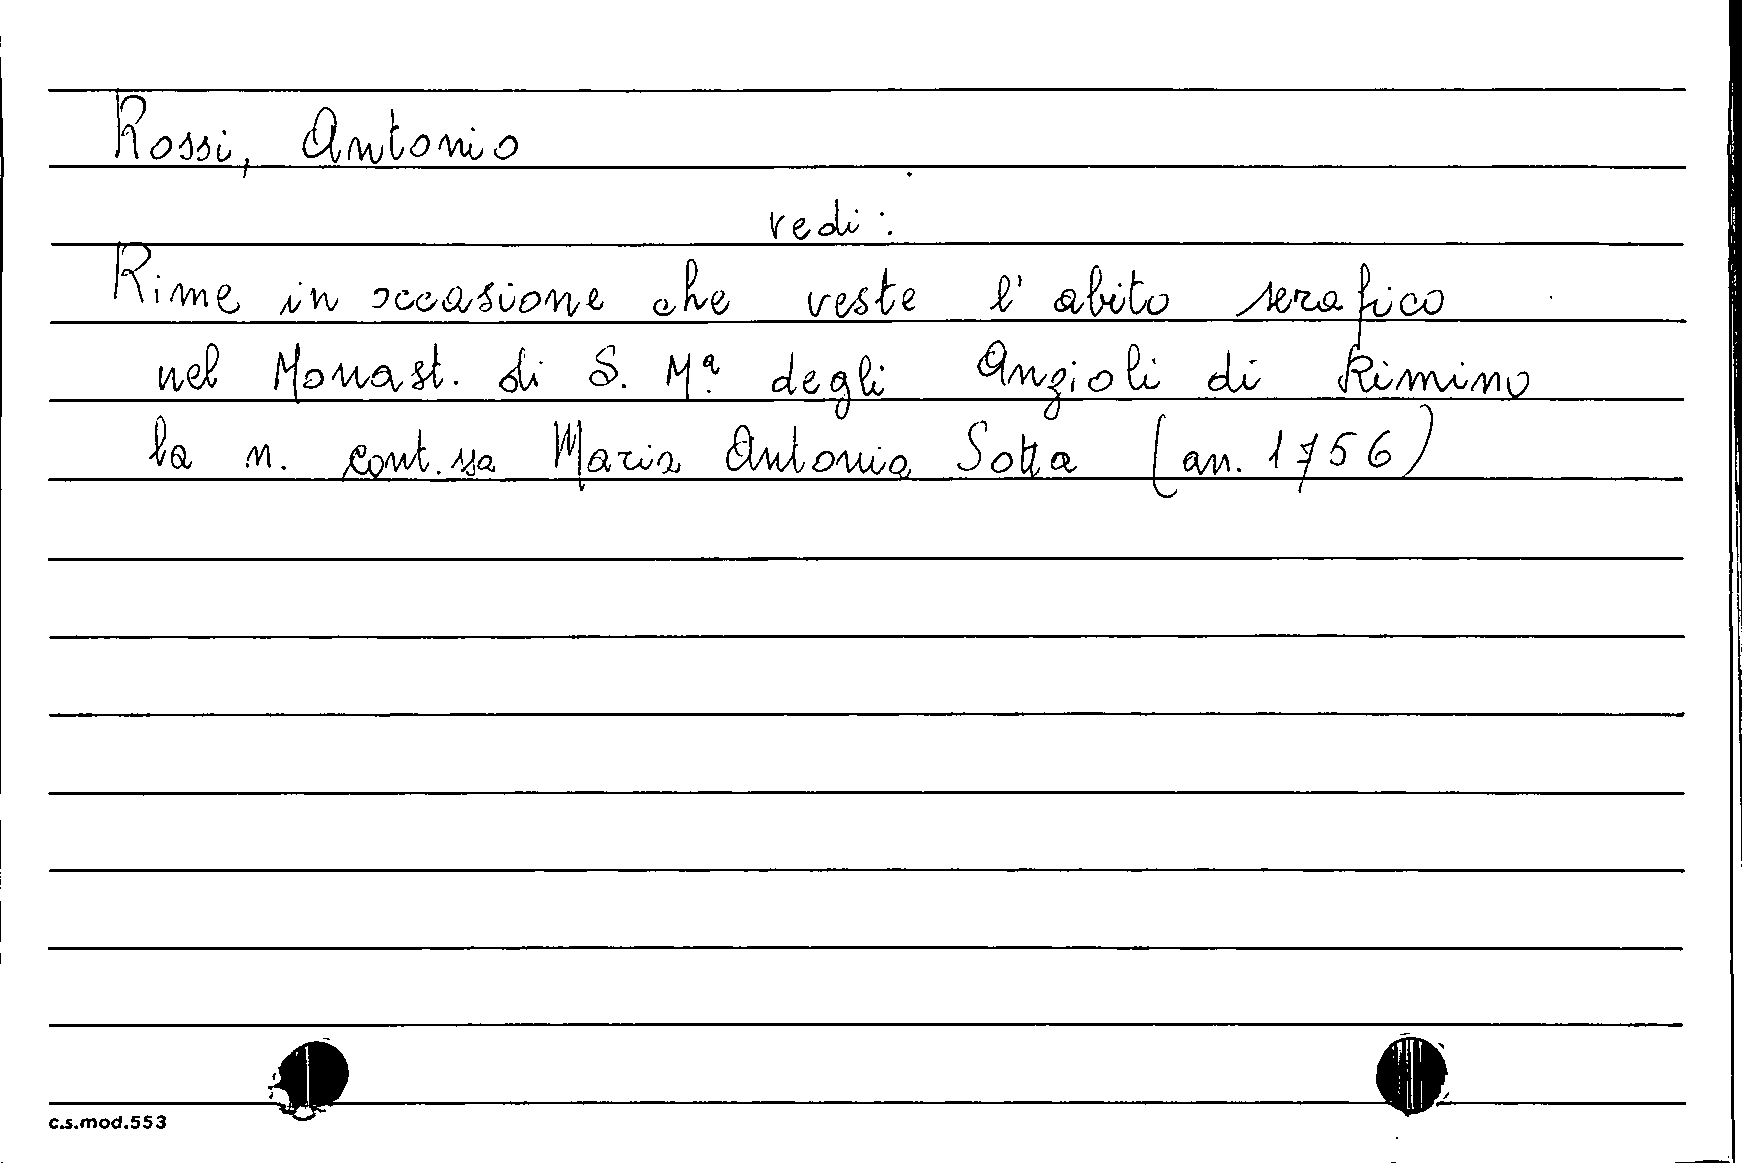 Rossi, Antonio
vedi:
Rime in occasione che veste l'abito serafico
nel Monast. di S. Mª degli Angioli di Rimino
la n. cont.ssa Maria Antonia Sotta (an. 1756)
c.s.mod.553